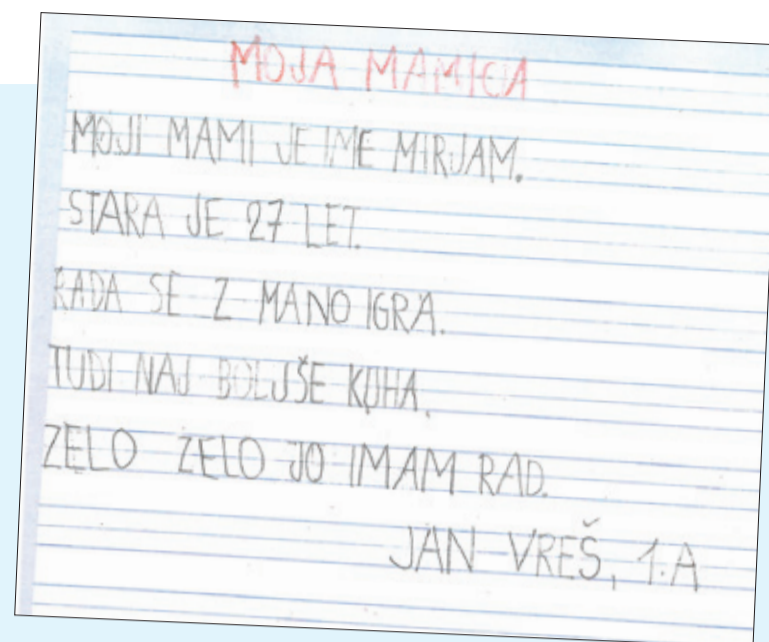 MOJA MAMICA
MOJI MAMI JE IME MIRJAM.
STARA JE 27 LET.
RADA SE Z MANO IGRA.
TUDI NAJ BOLJŠE KUHA.
ZELO ZELO JO IMAM RAD.
JAN VREŠ, 1.A